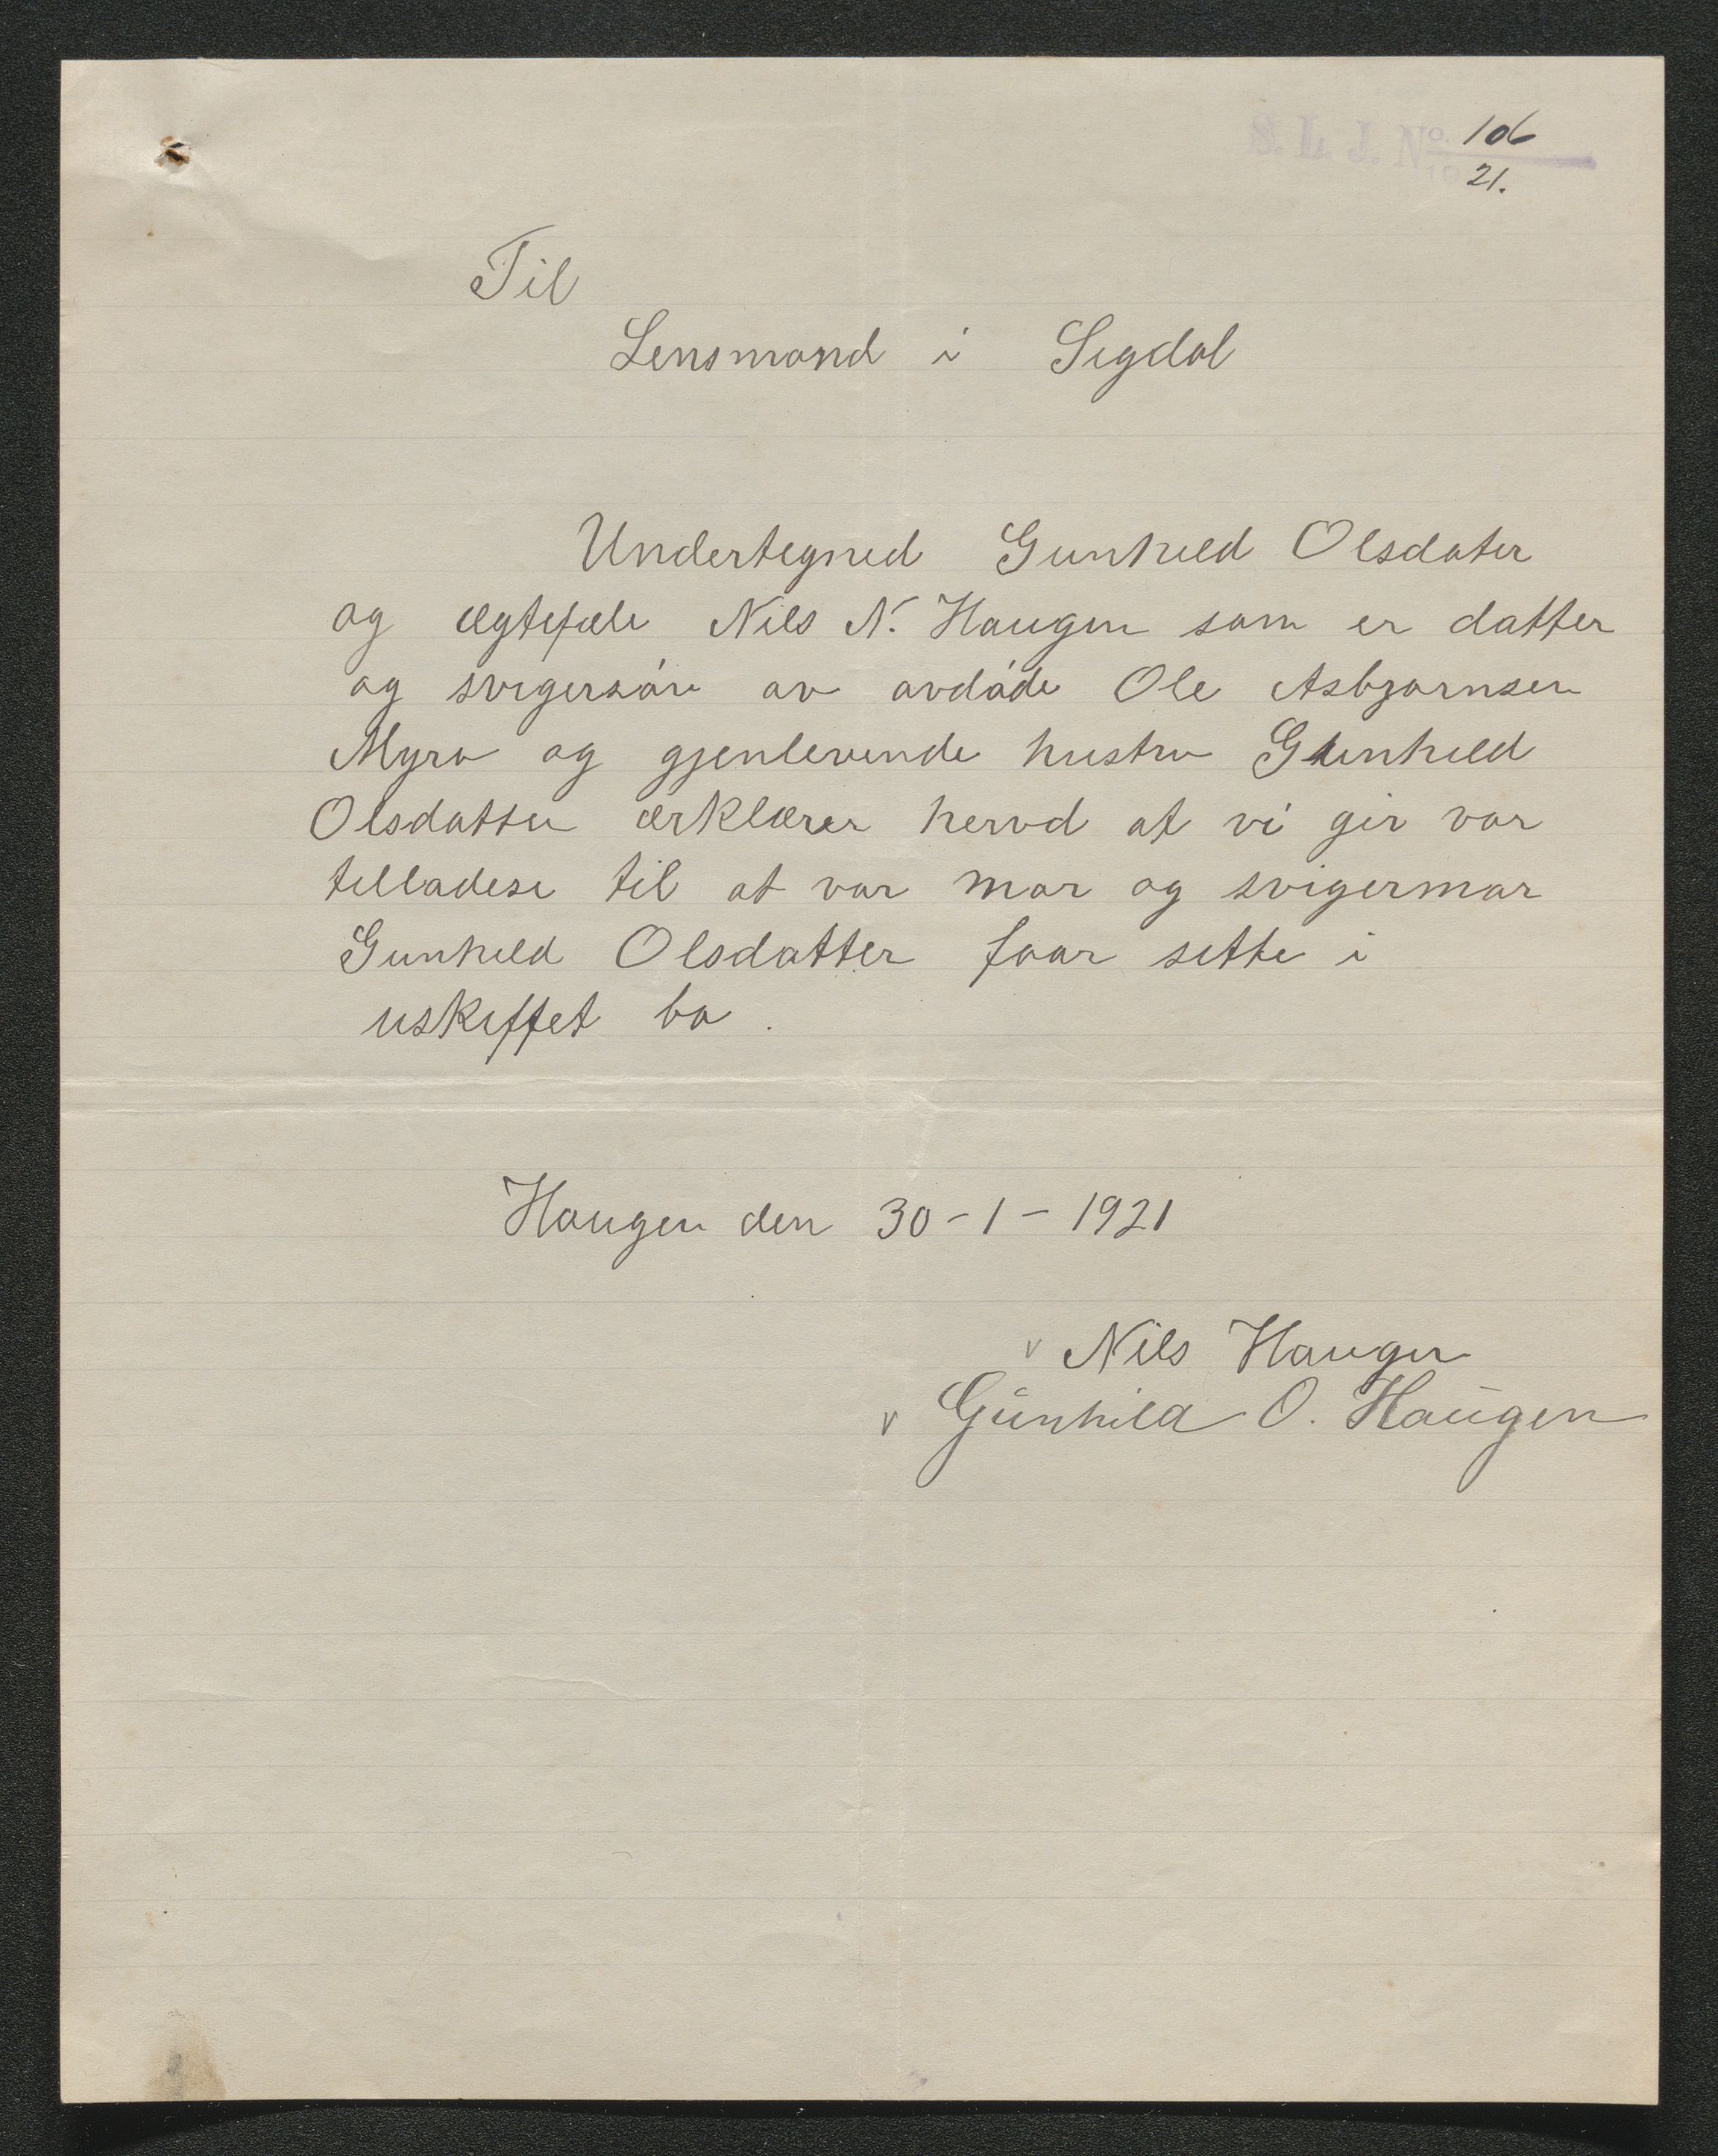 S. L. J. No. 106
21.
Til
Lensmand i Sigdal
Undertegned Gunhild Olsdater
og ægtefæle Nils N. Haugen som er datter
og svigersön av avdöde Ole Asbjørnsen
Myra og gjenlevende hustru Gunhild
Olsdatter ærklærer hervd at vi gir vor
telladese til at vor mor og svigermor
Gunhild Olsdatter faar sitte i
uskiftet bo.
Haugen den 30-1-1921
v Nils Haugen
v Gunhild O. Haugen